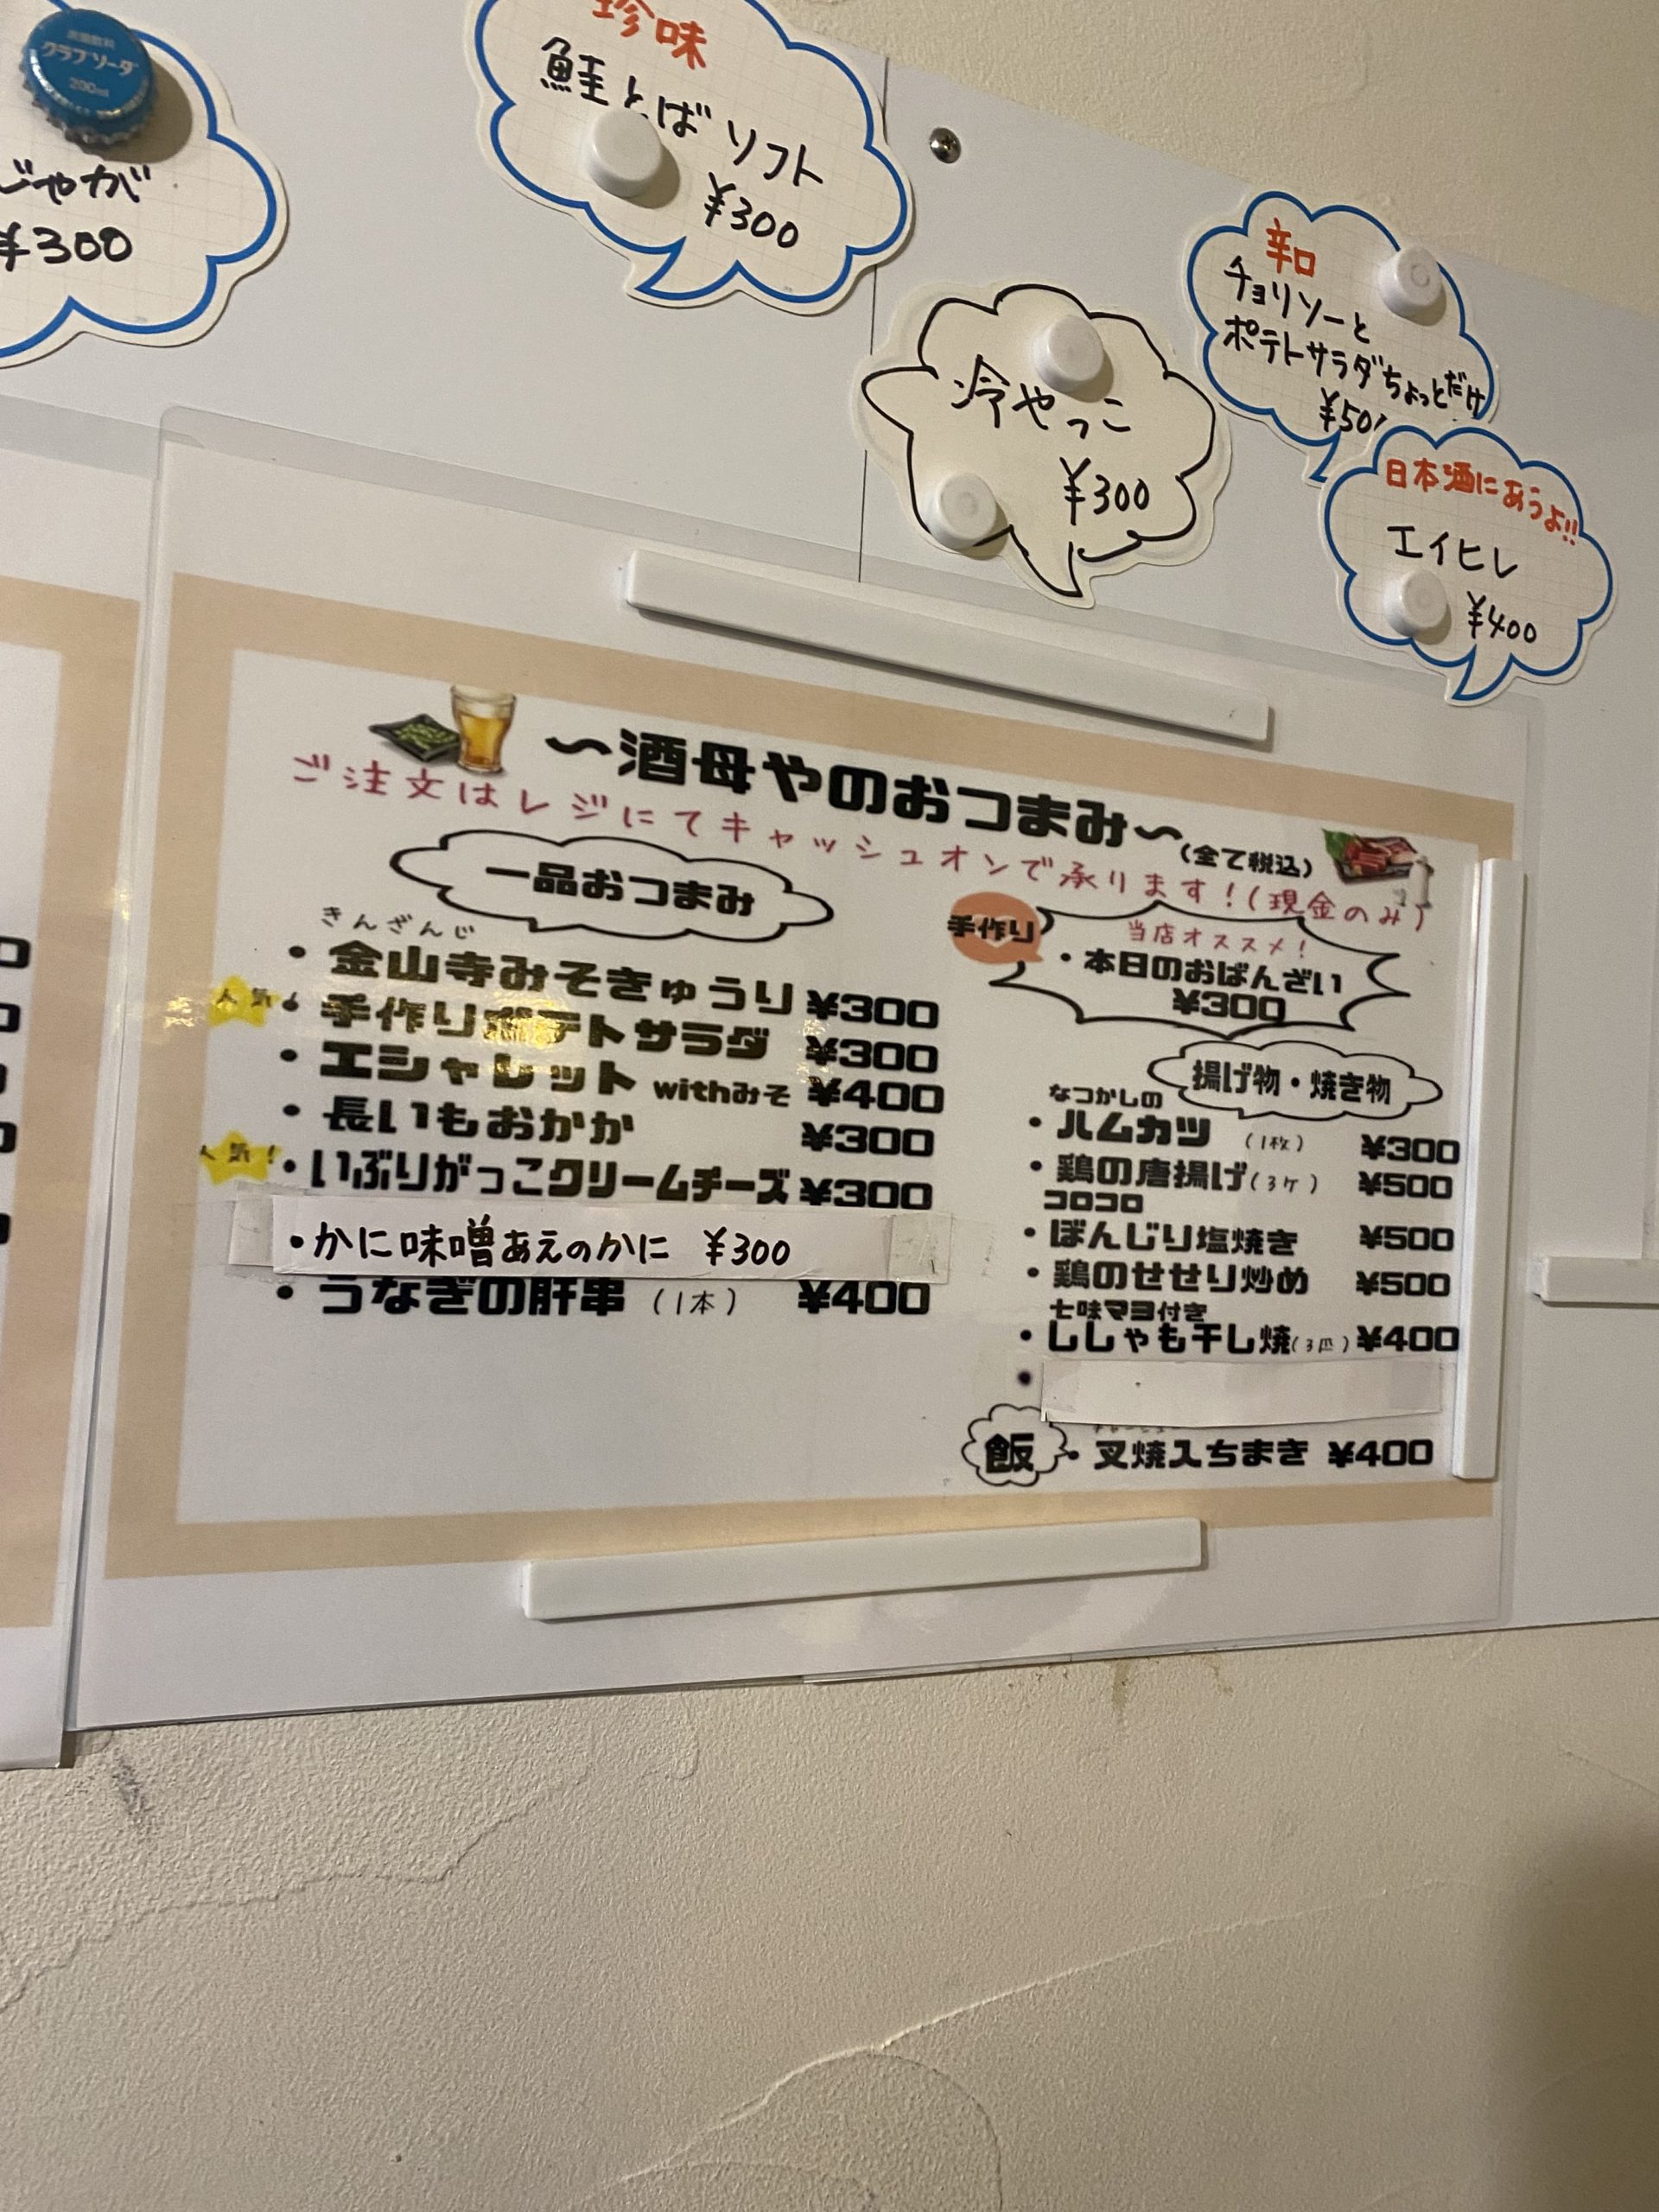 クラブソーダ
200ml
じゃが
¥300
珍味
鮭とばソフト
¥300
辛口
チョリソーと
ポテトサラダちょっとだけ
冷やっこ
¥300
日本酒にあうよ!!
エイヒレ
¥400
〜酒母やのおつまみ〜(全て税込)
ご注文はレジにてキャッシュオンで承ります！(現金のみ)
一品おつまみ
きんざんじ
・金山寺みそきゅうり ¥300
人気！・手作りポテトサラダ ¥300
・エシャレット withみそ ¥400
・長いもおかか ¥300
人気！・いぶりがっこクリームチーズ ¥300
・かに味噌あえのかに ¥300
・うなぎの肝串（1本） ¥400
手作り
当店オススメ！
・本日のおばんざい
¥300
揚げ物・焼き物
なつかしの
・ハムカツ（1枚） ¥300
・鶏の唐揚げ（3ケ） ¥500
コロコロ
・ぼんじり塩焼き ¥500
・鶏のせせり炒め ¥500
七味マヨ付き
・ししゃも干し焼（3匹） ¥400
・
飯・叉焼入ちまき ¥400